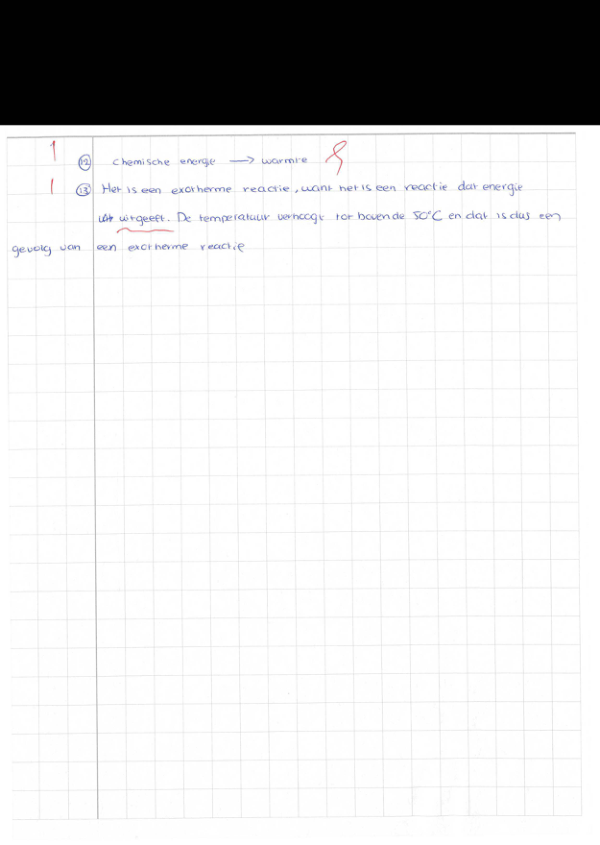 1 12 chemische energie → warmte
1 13 Het is een exotherme reactie, want het is een reactie dat energie
uitgeeft. De temperatuur verhoogt tot boven de 50°C en dat is dus een
gevolg van een exotherme reactie